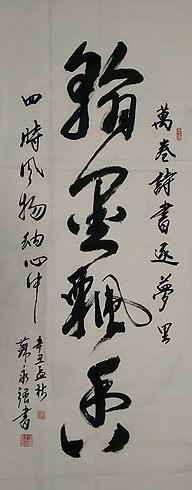 萬卷詩書逐夢里
翰墨飄香
四時風物納心中
辛丑孟秋
蔣永強書